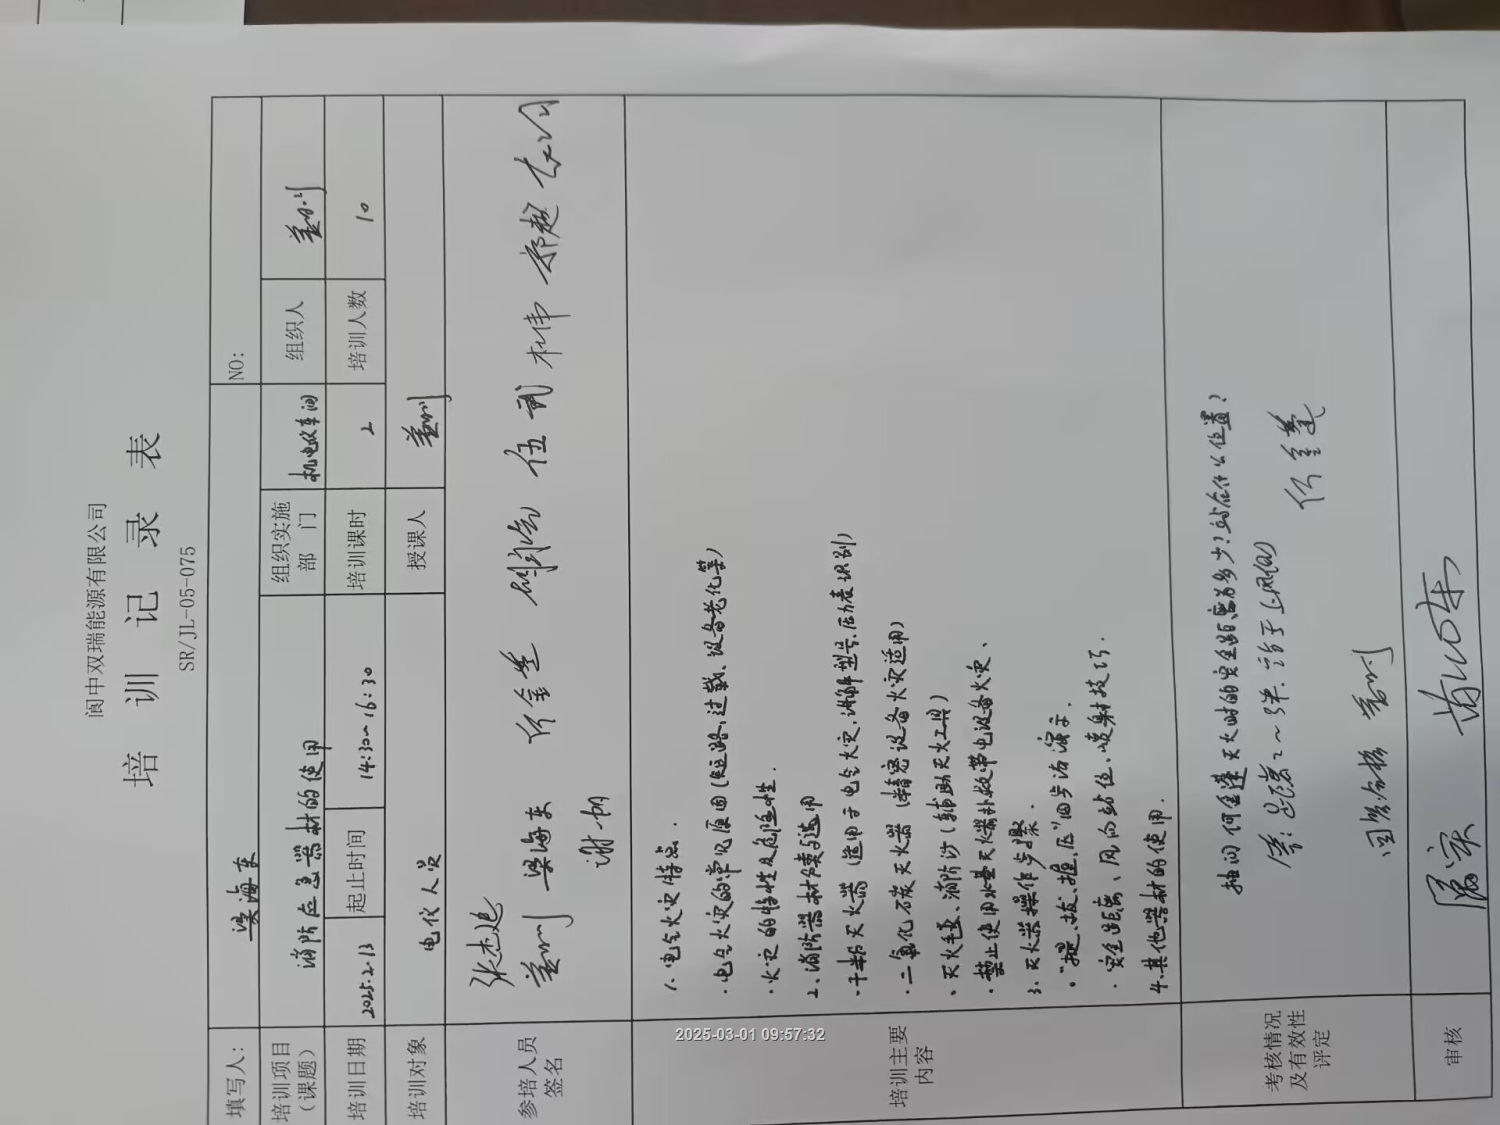 阆中双瑞能源有限公司
培训记录表
SR/JL-05-075
填写人： 梁海东 NO:
培训项目（课题） 消防应急器材的使用 组织实施部门 机电仪车间 组织人
培训日期 2025.2.13 起止时间 14:30~16:30 培训课时 2 培训人数 10
培训对象 电仪人员 授课人
参培人员签名 张杰 梁海东 何金莲 伍武 杜伟 郑越
谢一帆
培训主要内容
1. 电气火灾特点.
· 电气火灾的常见原因(短路,过载、设备老化等)
· 火灾的特性及危险性.
2、消防器材种类与选用
· 干粉灭火器（适用于电气火灾,讲解型号.压力表识别）
· 二氧化碳灭火器（精密设备火灾适用）
、灭火毯、消防沙（辅助灭火工具）
· 禁止使用水基灭火器扑救带电设备火灾、
3. 灭火器操作步骤.
· "提、拔、握、压"四步法演示.
· 安全距离、风向站位、喷射技巧.
4. 其他器材的使用.
考核情况及有效性评定
抽问何金莲灭火时的安全距离为多少?站在什么位置?
答: 距离2~3米. 站于上风向 何金莲
回答合格
审核
2025-03-01 09:57:32